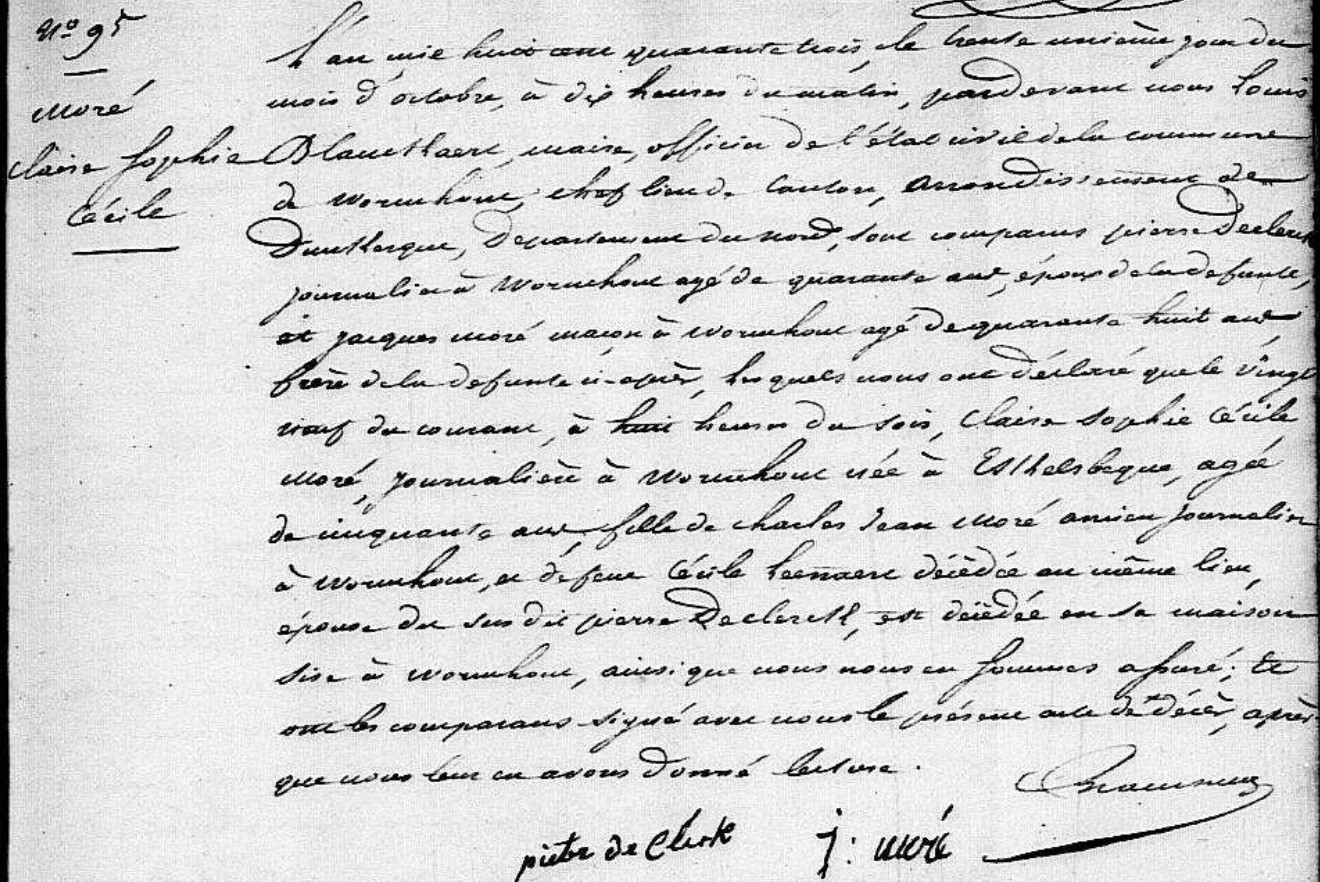 N.º 95
Moré
Claire Sophie
Cécile
L'an mil huit cent quarante trois, le trente unième jour du
mois d'octobre, à dix heures du matin, pardevant nous Louis
maire, officier de l'état civil de la commune
de Wormhout, chef lieu de Canton, arrondissement de
Dunkerque, Département du nord, sont comparus pierre Declerck
journalier à Wormhout agé de quarante ans, époux de la defunte,
et jacques Moré maçon à Wormhout agé de quarante huit ans
frère de la defunte ci-après, lesquels nous ont déclaré que le vingt
neuf du courant, à huit heures du soir, Claire Sophie Cécile
Moré, journalière à Wormhout née à Esthelsbeque, agée
de cinquante ans, fille de charles Jean Moré ancien journalier
à Wormhout, et défunt Cécile décédée au même lieu,
épouse du sus dit pierre Declerck, est décédée en sa maison
sise à Wormhout, ainsi que nous nous en sommes assuré; Et
ont les comparans signé avec nous le présent acte de décès, après
que nous leur en avons donné lecture.
pieter de Clerk J: Moré